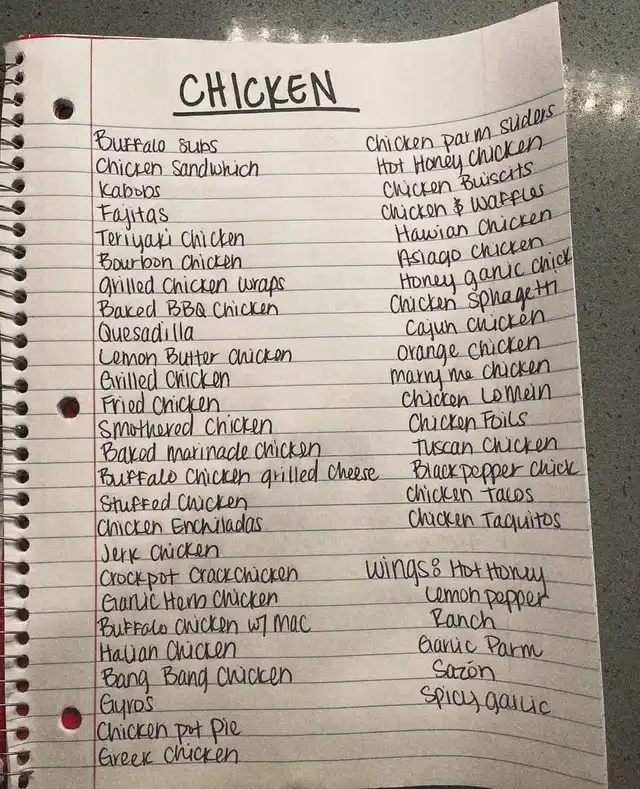 CHICKEN
Buffalo subs
Chicken Sandwhich
Kabobs
Fajitas
Teriyaki Chicken
Bourbon Chicken
grilled Chicken wraps
Baked BBQ Chicken
Quesadilla
Lemon Butter Chicken
Grilled Chicken
Fried Chicken
Smothered Chicken
Baked Marinade Chicken
Buffalo Chicken grilled Cheese
Stuffed Chicken
Chicken Enchiladas
Jerk Chicken
Crockpot Crack Chicken
Garlic Herb Chicken
Buffalo Chicken w/ Mac
Italian Chicken
Bang Bang Chicken
Gyros
Chicken pot pie
Greek Chicken
Chicken parm sliders
Hot Honey Chicken
Chicken Buiscits
Chicken & Waffles
Hawian Chicken
Asiago Chicken
Honey garlic chick
Chicken Sphagetti
Cajun Chicken
Orange Chicken
marry me chicken
Chicken Lo mein
Chicken Foils
Tuscan Chicken
Black pepper chick
Chicken Tacos
Chicken Taquitos
Wings: Hot Honey
Lemon pepper
Ranch
Garlic Parm
Sazón
Spicy garlic